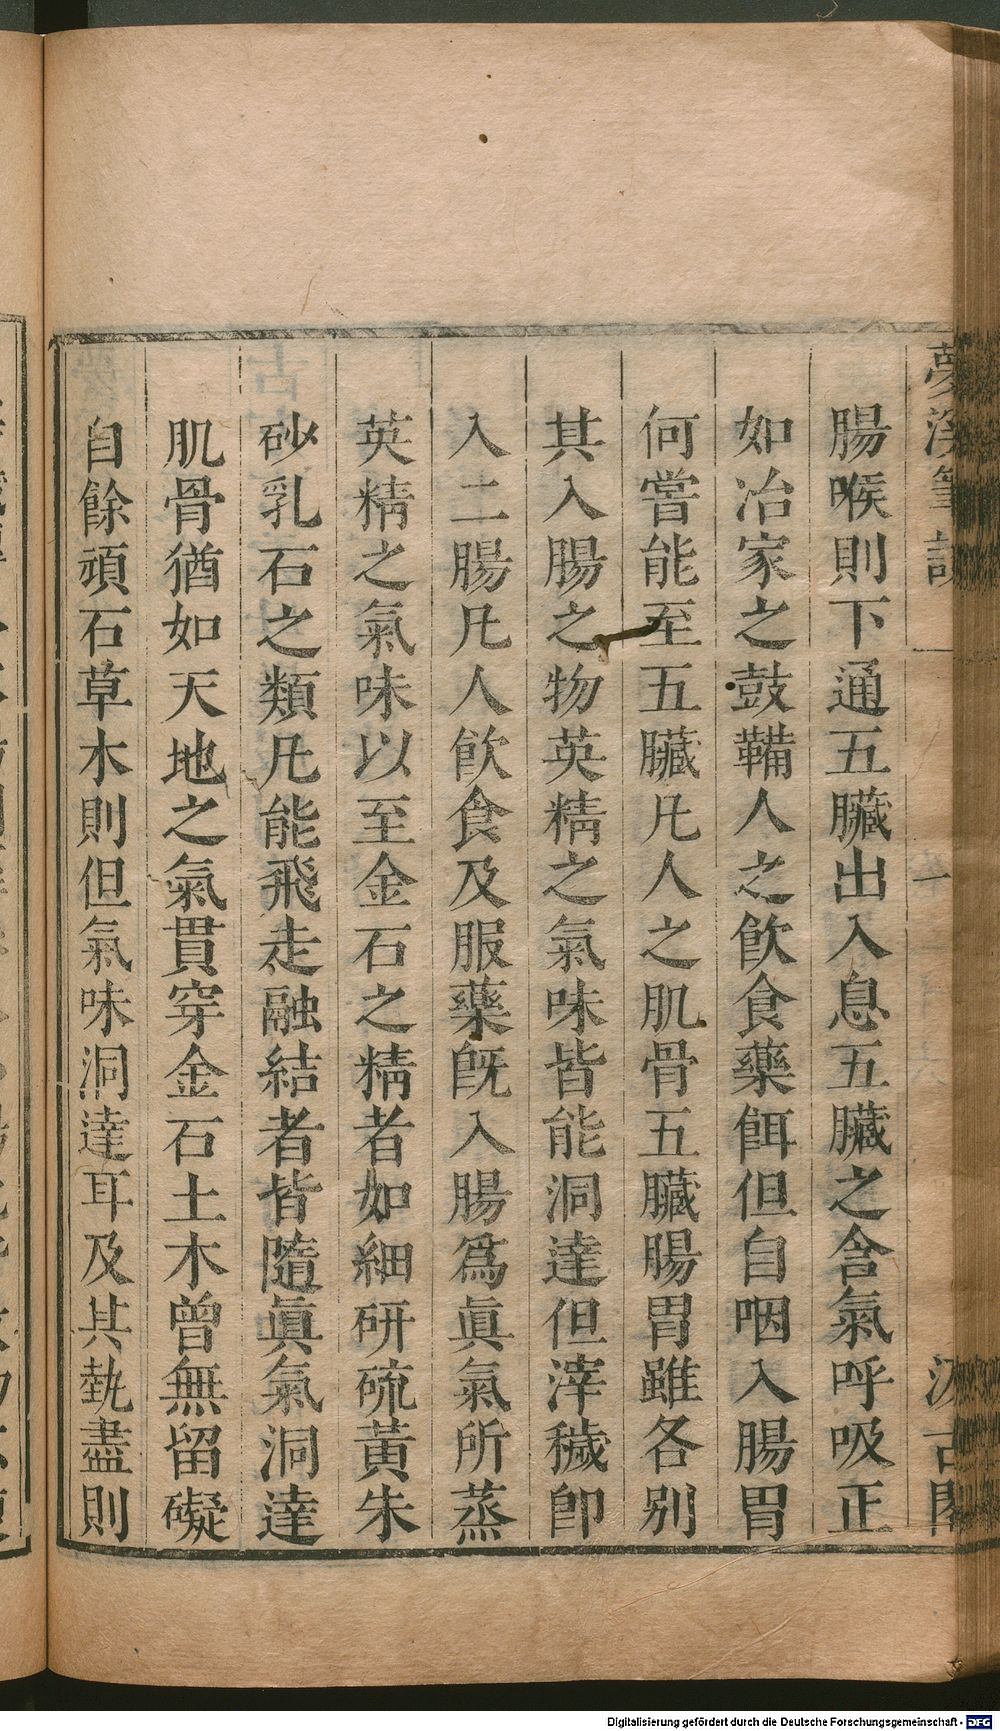 夢溪筆談
汲古閣
腸喉則下通五臟出入息五臟之含氣呼吸正
如冶家之鼓鞴人之飲食藥餌但自咽入腸胃
何嘗能至五臟凡人之肌骨五臟腸胃雖各別
其入腸之物英精之氣味皆能洞達但滓穢卽
入二腸凡人飲食及服藥旣入腸爲眞氣所蒸
英精之氣味以至金石之精者如細研硫黃朱
砂乳石之類凡能飛走融結者皆隨眞氣洞達
肌骨猶如天地之氣貫穿金石土木曾無留礙
自餘頑石草木則但氣味洞達耳及其埶盡則
Digitalisierung gefördert durch die Deutsche Forschungsgemeinschaft - DFG